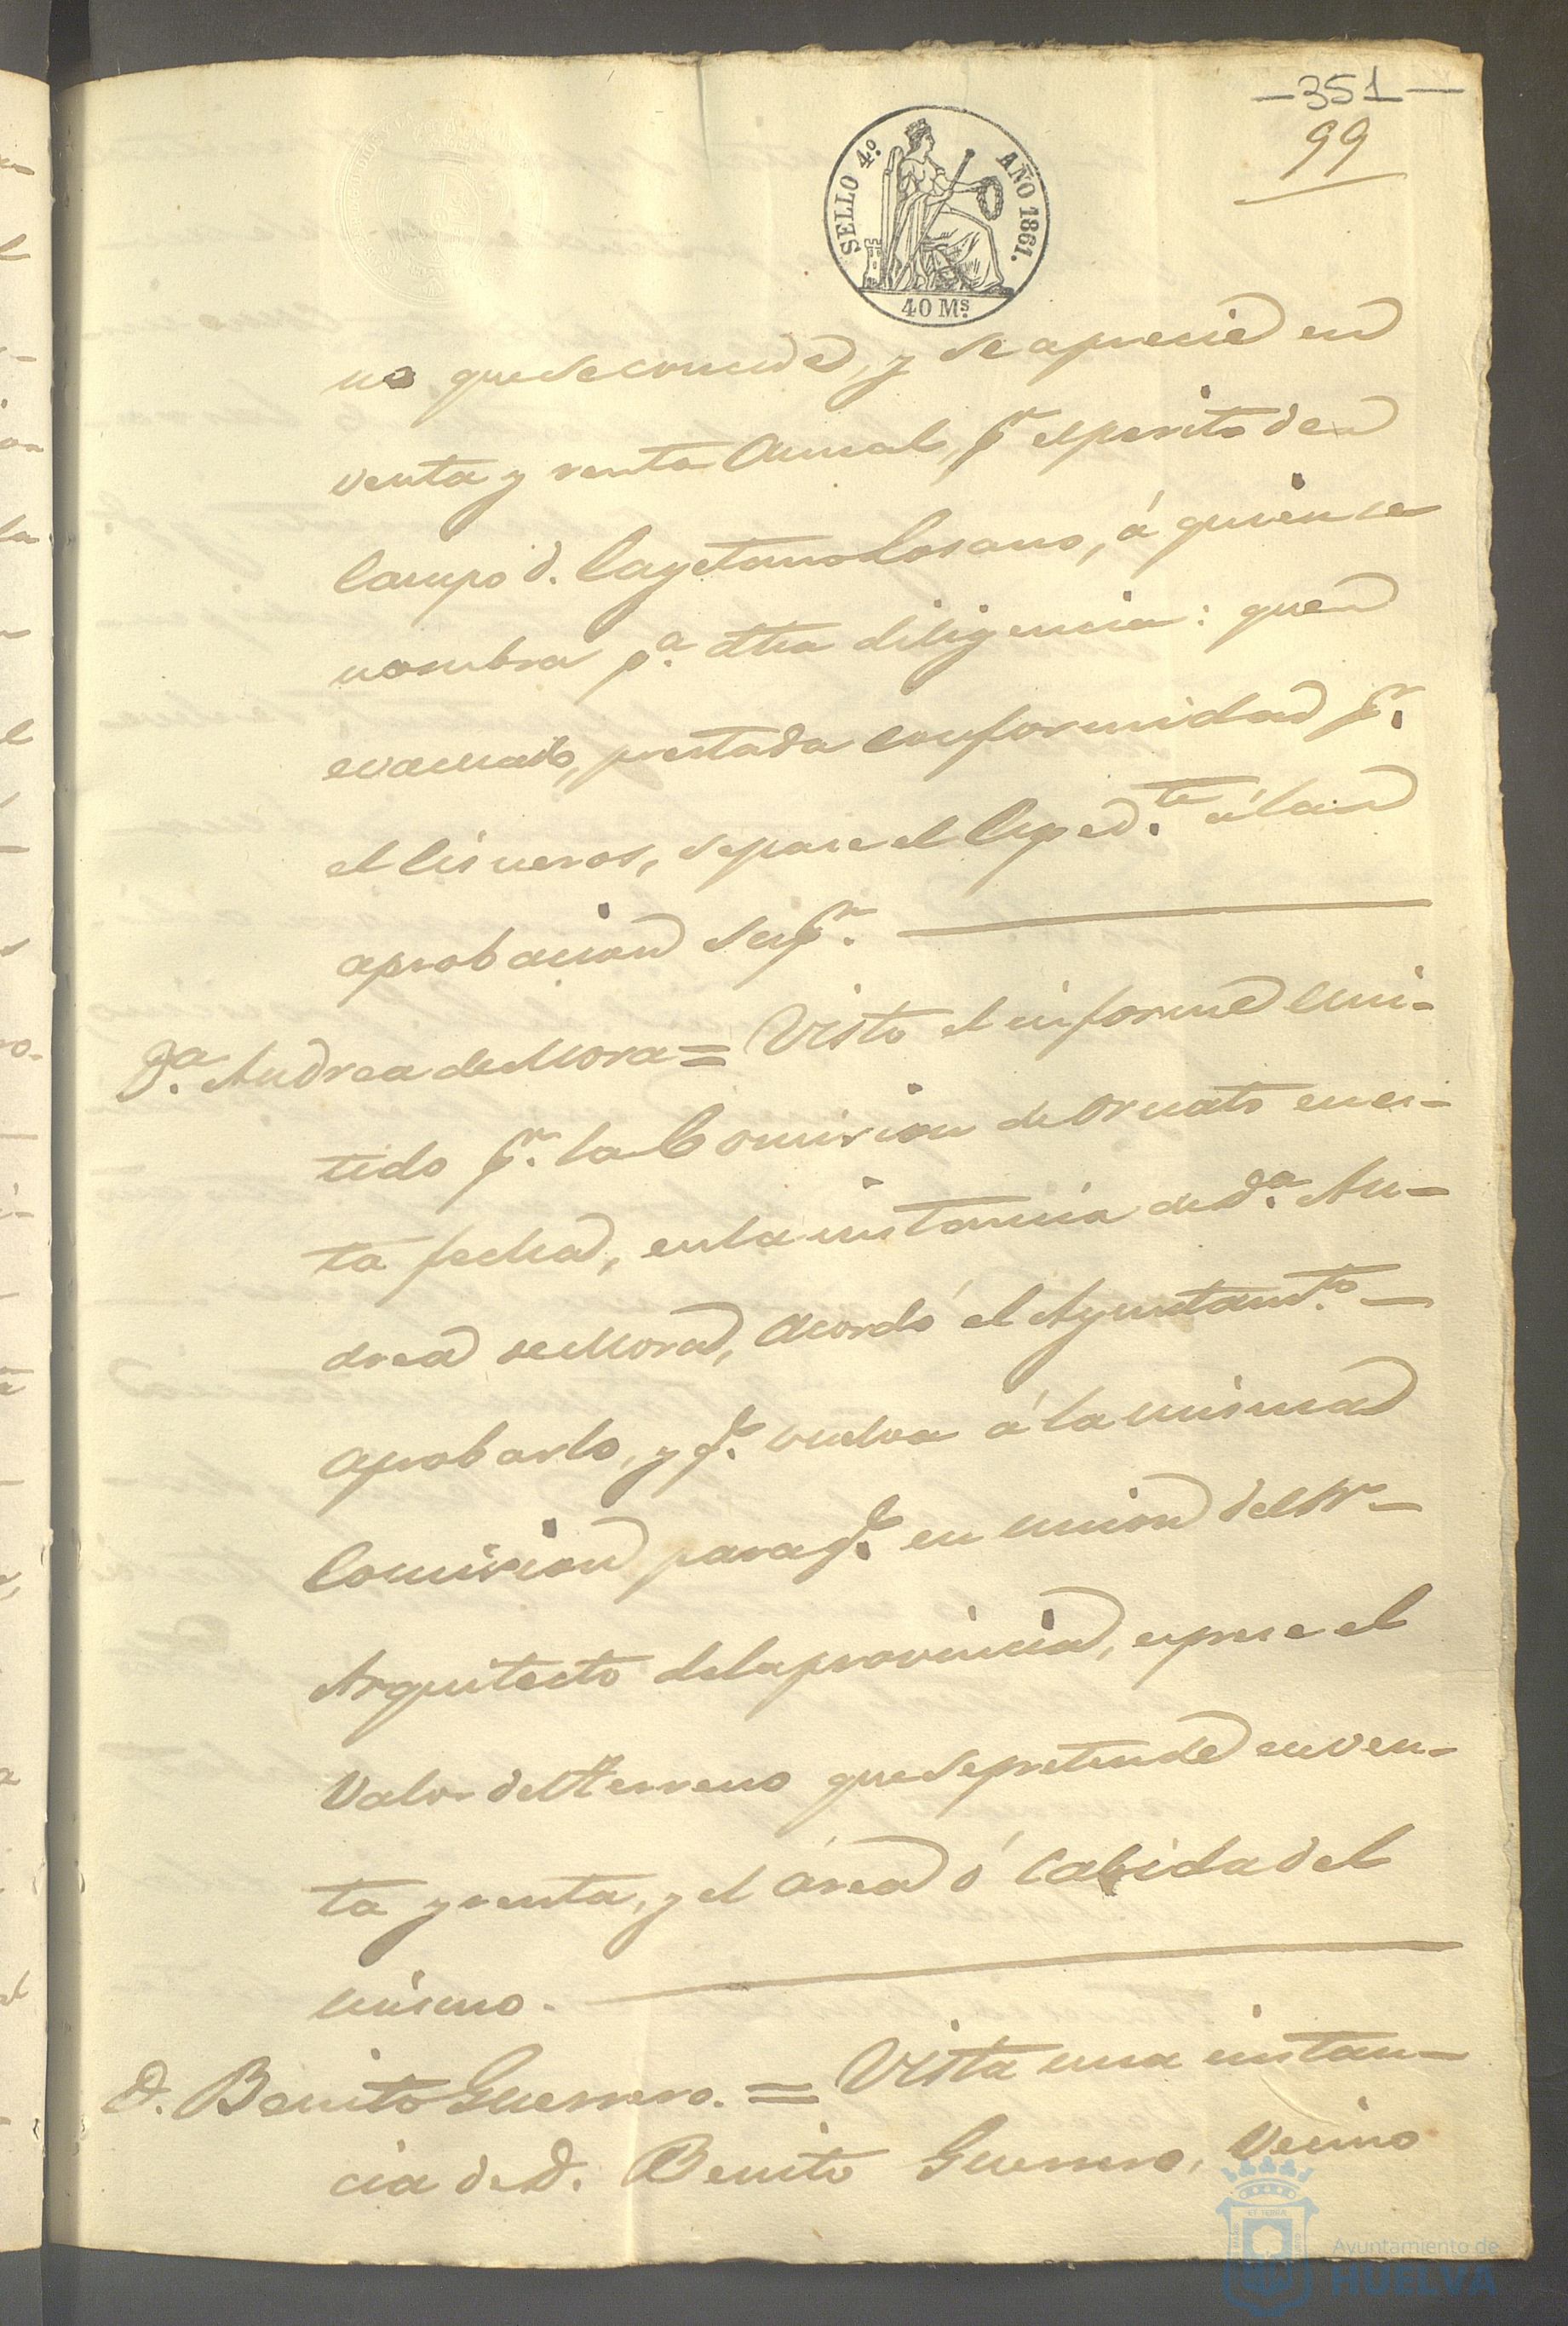 —351—
99
SELLO 4º. AÑO 1861.
40 Ms.
no que se concede, y se aprecie en
venta y renta anual, pr. el perito de
Campo d. Cayetano Losano, á quien se
nombra pa. dha diligencia: que
evacuado, prestada conformidad pr.
el Cisneros, se pase el Exped.te á la
aprobacion Supr.
Da. Andrea de Mora = Visto el informe emi-
tido pr. la Comision de Ornato en es-
ta fecha, en la instancia de Da. An-
drea de Mora, acordó el Ayuntamto. —
aprobarlo, y q.e vuelva á la misma
Comision para q.e en union del Sr —
Arquitecto de la provincia, esprese el
Valor del terreno que se pretende en ven-
ta y renta, y el área ó cabida del
mismo.
D. Benito Guerrero. = Vista una instan-
cia de D. Benito Guerrero, Vecino
Ayuntamiento de
HUELVA